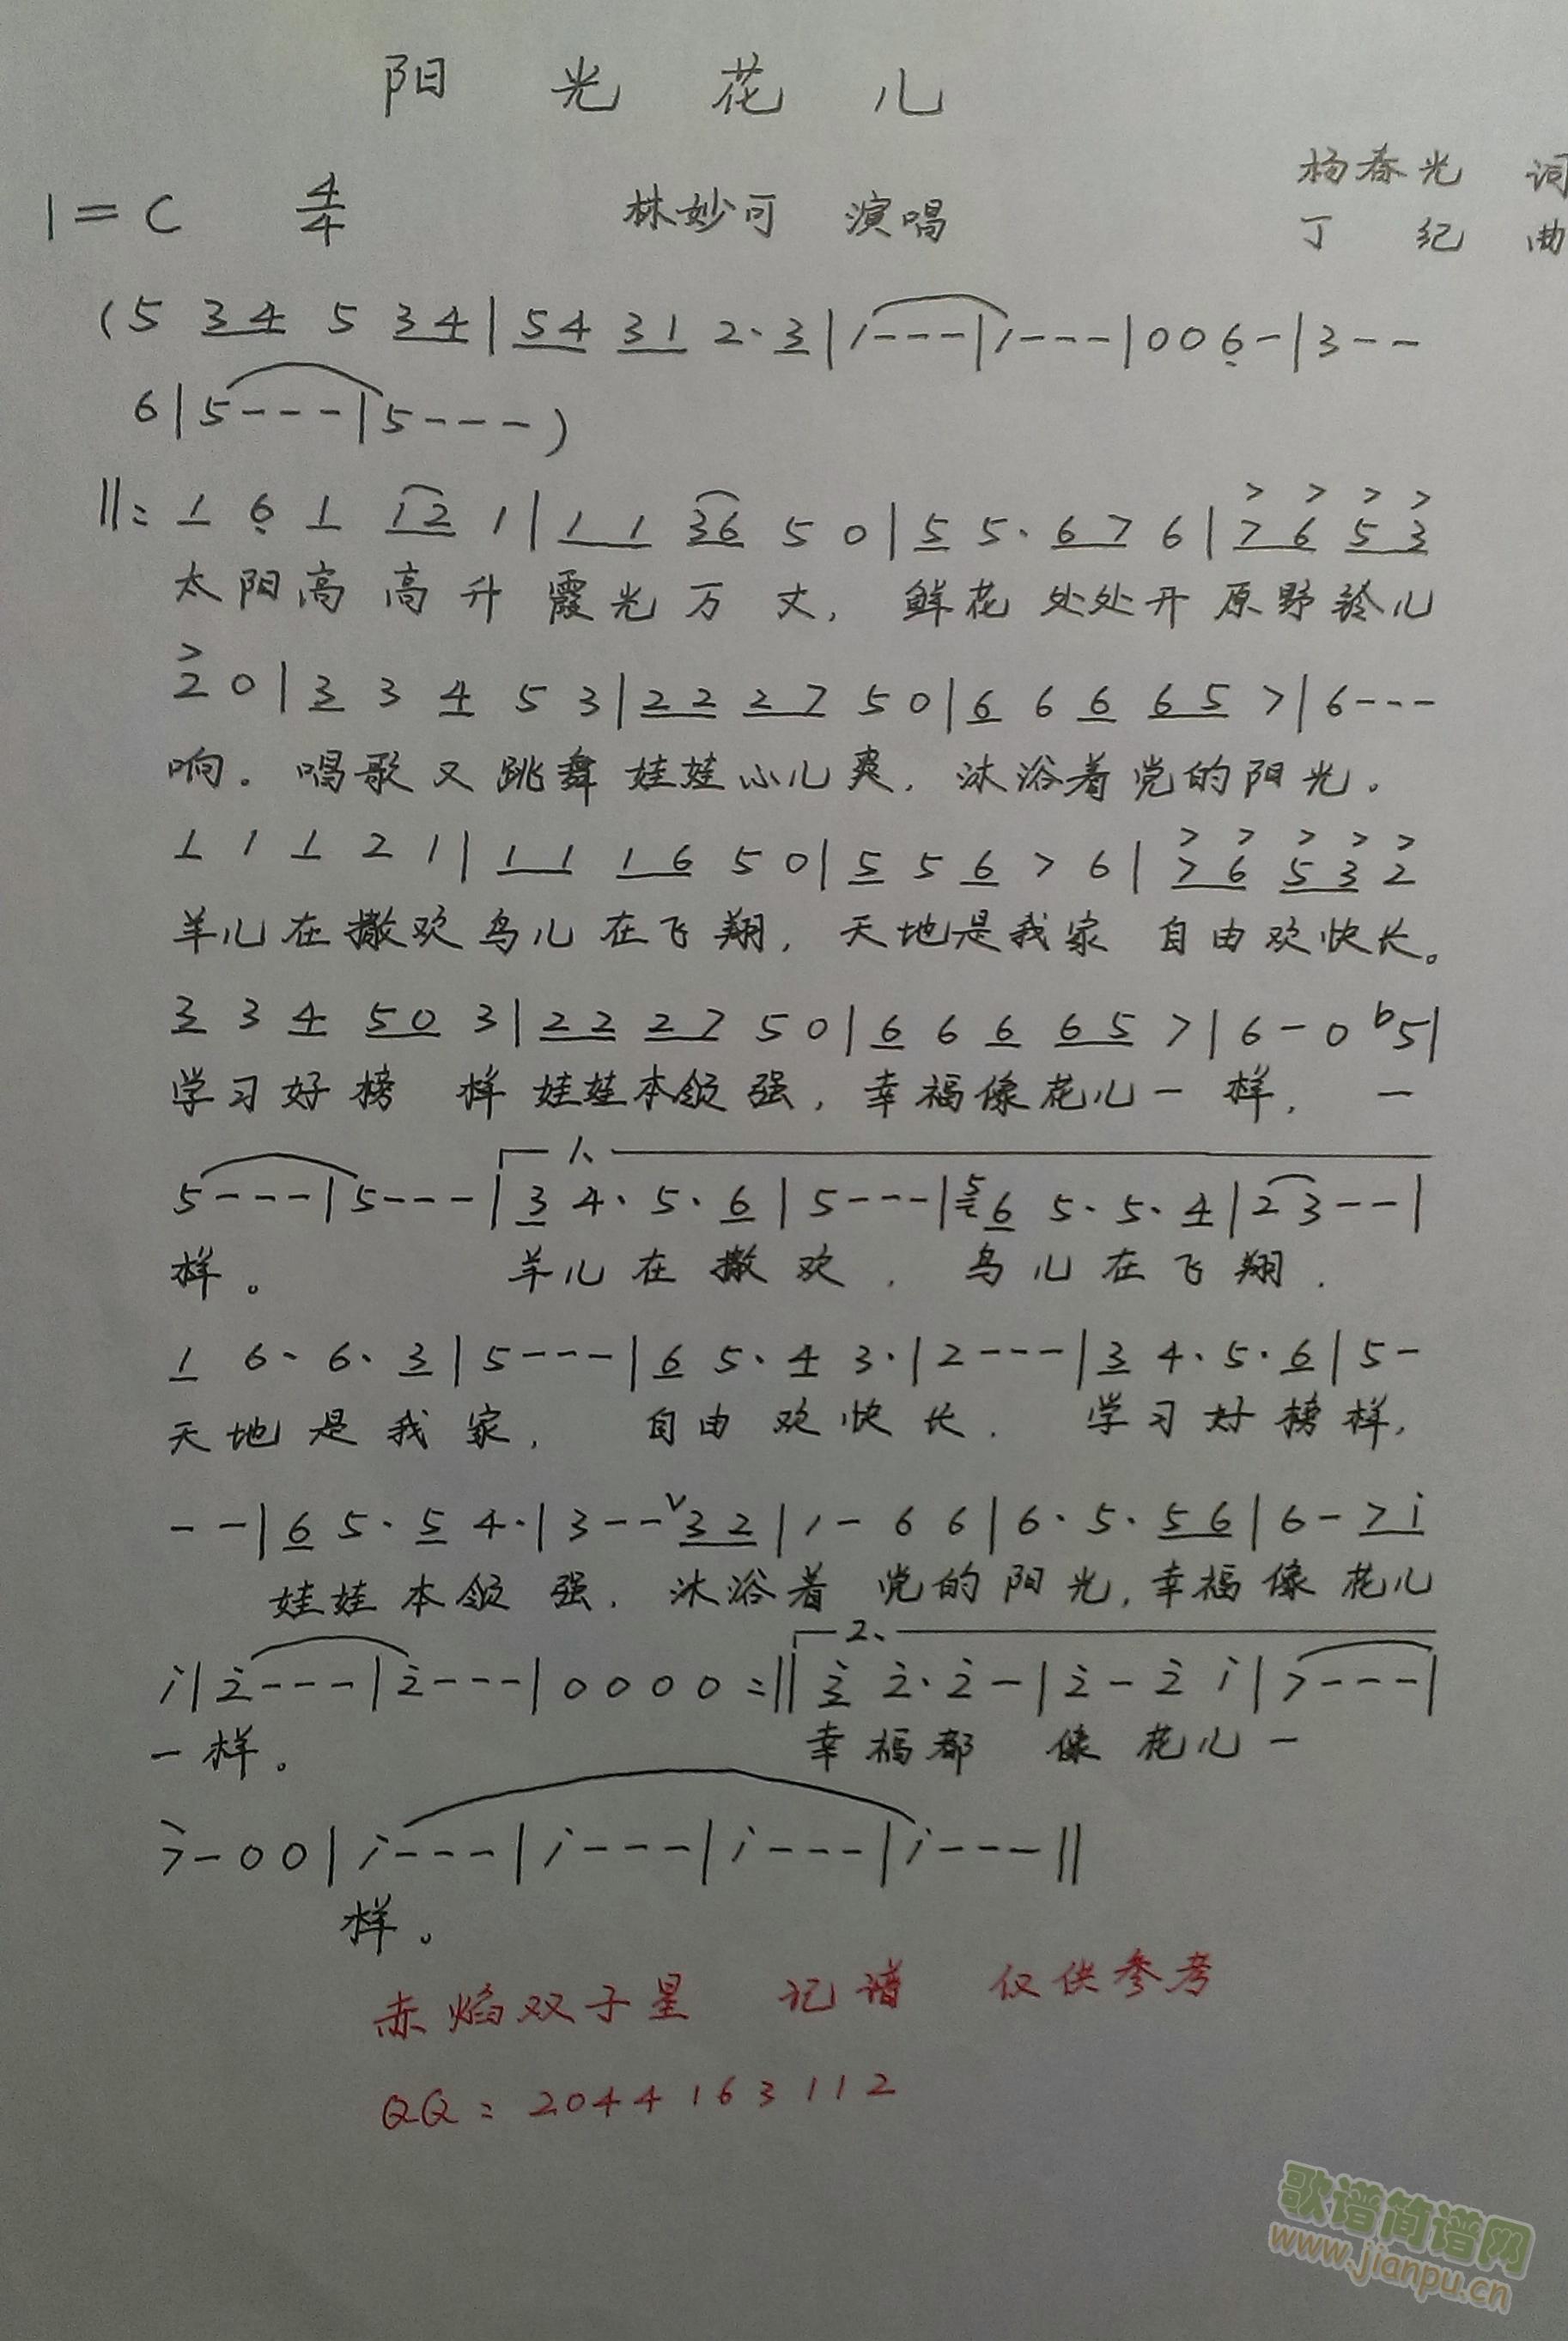 阳光花儿
杨春光 词
1=C 4/4 林妙可 演唱
丁 纪 曲
(5 34 5 34|54 31 2·3|1---|1---|006-|3--
6|5---|5---)
‖: 1 6 1 12 1|1 1 36 5 0|5 5·67 6|7 6 5 3
太阳高高升霞光万丈,鲜花处处开原野铃儿
2 0|3 3 4 5 3|22 27 50|6 6 6 65 7|6---
响。唱歌又跳舞娃娃心儿爽,沐浴着党的阳光。
1 1 1 2 1|1 1 1 6 5 0|5 5 6 7 6|7 6 5 3 2
羊儿在撒欢鸟儿在飞翔,天地是我家 自由欢快长。
3 3 4 50 3|22 27 50|6 6 6 65 7|6-0 b5|
学习好榜样娃娃本领强,幸福像花儿一样,一
1、
5---|5---|3 4·5·6|5---|5 6 5·5·4|23--|
样。羊儿在撒欢,鸟儿在飞翔.
1 6·6·3|5---|6 5·4 3·|2---|3 4·5·6|5-
天地是我家,自由欢快长.学习好榜样,
--|6 5·5 4·|3--v32|1-66|6·5·56|6-7i
娃娃本领强.沐浴着党的阳光,幸福像花儿
2、
i|2---|2---|0000:‖3 2·2-|2-2 i|7---|
一样。幸福都像花儿一
7-00|i---|i---|i---|i---‖
样。
赤焰双子星 记谱 仅供参考
QQ:2044163112
歌谱简谱网
www.jianpu.cn